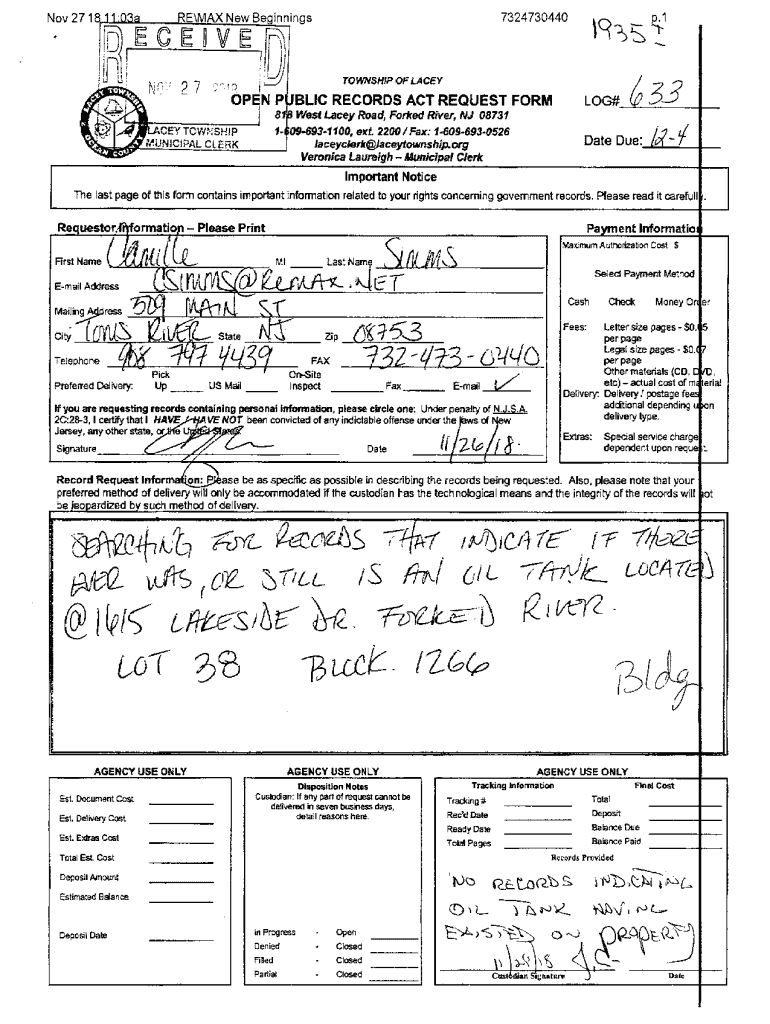 Nov 27 18 11:03a RE/MAX New Beginnings 7324730440 p.1
RECEIVED
NOV 27 2018
LACEY TOWNSHIP
MUNICIPAL CLERK
LACEY TOWNSHIP
OCEAN COUNTY
TOWNSHIP OF LACEY
OPEN PUBLIC RECORDS ACT REQUEST FORM
818 West Lacey Road, Forked River, NJ 08731
1-609-693-1100, ext. 2200 / Fax: 1-609-693-0526
laceyclerk@laceytownship.org
Veronica Laureigh – Municipal Clerk
1935
LOG# 633
Date Due: 12-4
Important Notice
The last page of this form contains important information related to your rights concerning government records. Please read it carefully.
Requestor Information – Please Print
First Name Camille MI Last Name Simms
E-mail Address CSIMMS@REMAX.NET
Mailing Address 509 MAIN ST
City TOMS RIVER State NJ Zip 08753
Telephone 908 797 4439 FAX 732-473-0440
Preferred Delivery: Pick Up US Mail On-Site Inspect Fax E-mail ✓
If you are requesting records containing personal information, please circle one: Under penalty of N.J.S.A.
2C:28-3, I certify that I HAVE / HAVE NOT been convicted of any indictable offense under the laws of New
Jersey, any other state, or the United States.
Signature Date 11/26/18.
Payment Information
Maximum Authorization Cost $
Select Payment Method
Cash Check Money Order
Fees: Letter size pages - $0.05
per page
Legal size pages - $0.07
per page
Other materials (CD, DVD,
etc) – actual cost of material
Delivery: Delivery / postage fees
additional depending upon
delivery type.
Extras: Special service charge
dependent upon request.
Record Request Information: Please be as specific as possible in describing the records being requested. Also, please note that your
preferred method of delivery will only be accommodated if the custodian has the technological means and the integrity of the records will not
be jeopardized by such method of delivery.
SEARCHING FOR RECORDS THAT INDICATE IF THERE
EVER WAS, OR STILL IS AN OIL TANK LOCATED
@ 1615 LAKESIDE DR. FORKED RIVER.
LOT 38 BLOCK. 1266
Bldg
AGENCY USE ONLY
Est. Document Cost
Est. Delivery Cost
Est. Extras Cost
Total Est. Cost
Deposit Amount
Estimated Balance
Deposit Date
AGENCY USE ONLY
Disposition Notes
Custodian: If any part of request cannot be
delivered in seven business days,
detail reasons here.
In Progress - Open
Denied - Closed
Filled - Closed
Partial - Closed
AGENCY USE ONLY
Tracking Information Final Cost
Tracking # Total
Rec'd Date Deposit
Ready Date Balance Due
Total Pages Balance Paid
Records Provided
NO RECORDS INDICATING
OIL TANK HAVING
EXISTED ON PROPERTY
11/28/18 J.C.
Custodian Signature Date